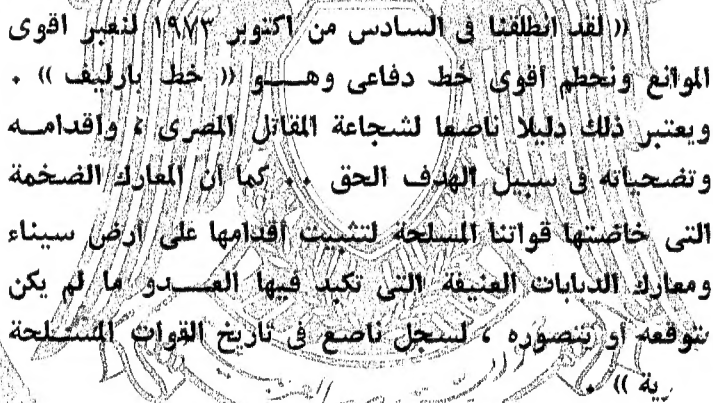 (( لقد انطلقنا فى السادس من اكتوبر ١٩٧٣ لنعبر اقوى
الموانع ونحطم اقوى خط دفاعى وهـــو (( خط بارليف )) .
ويعتبر ذلك دليلا ناصعا لشجاعة المقاتل المصرى ، واقدامــه
وتضحياته فى سبيل الهدف الحق .. كما ان المعارك الضخمة
التى خاضتها قواتنا المسلحة لتثبيت اقدامها على ارض سيناء
ومعارك الدبابات العنيفة التى تكبد فيها العـــدو ما لم يكن
يتوقعه او يتصوره ، لسجل ناصع فى تاريخ القوات المسـلحة